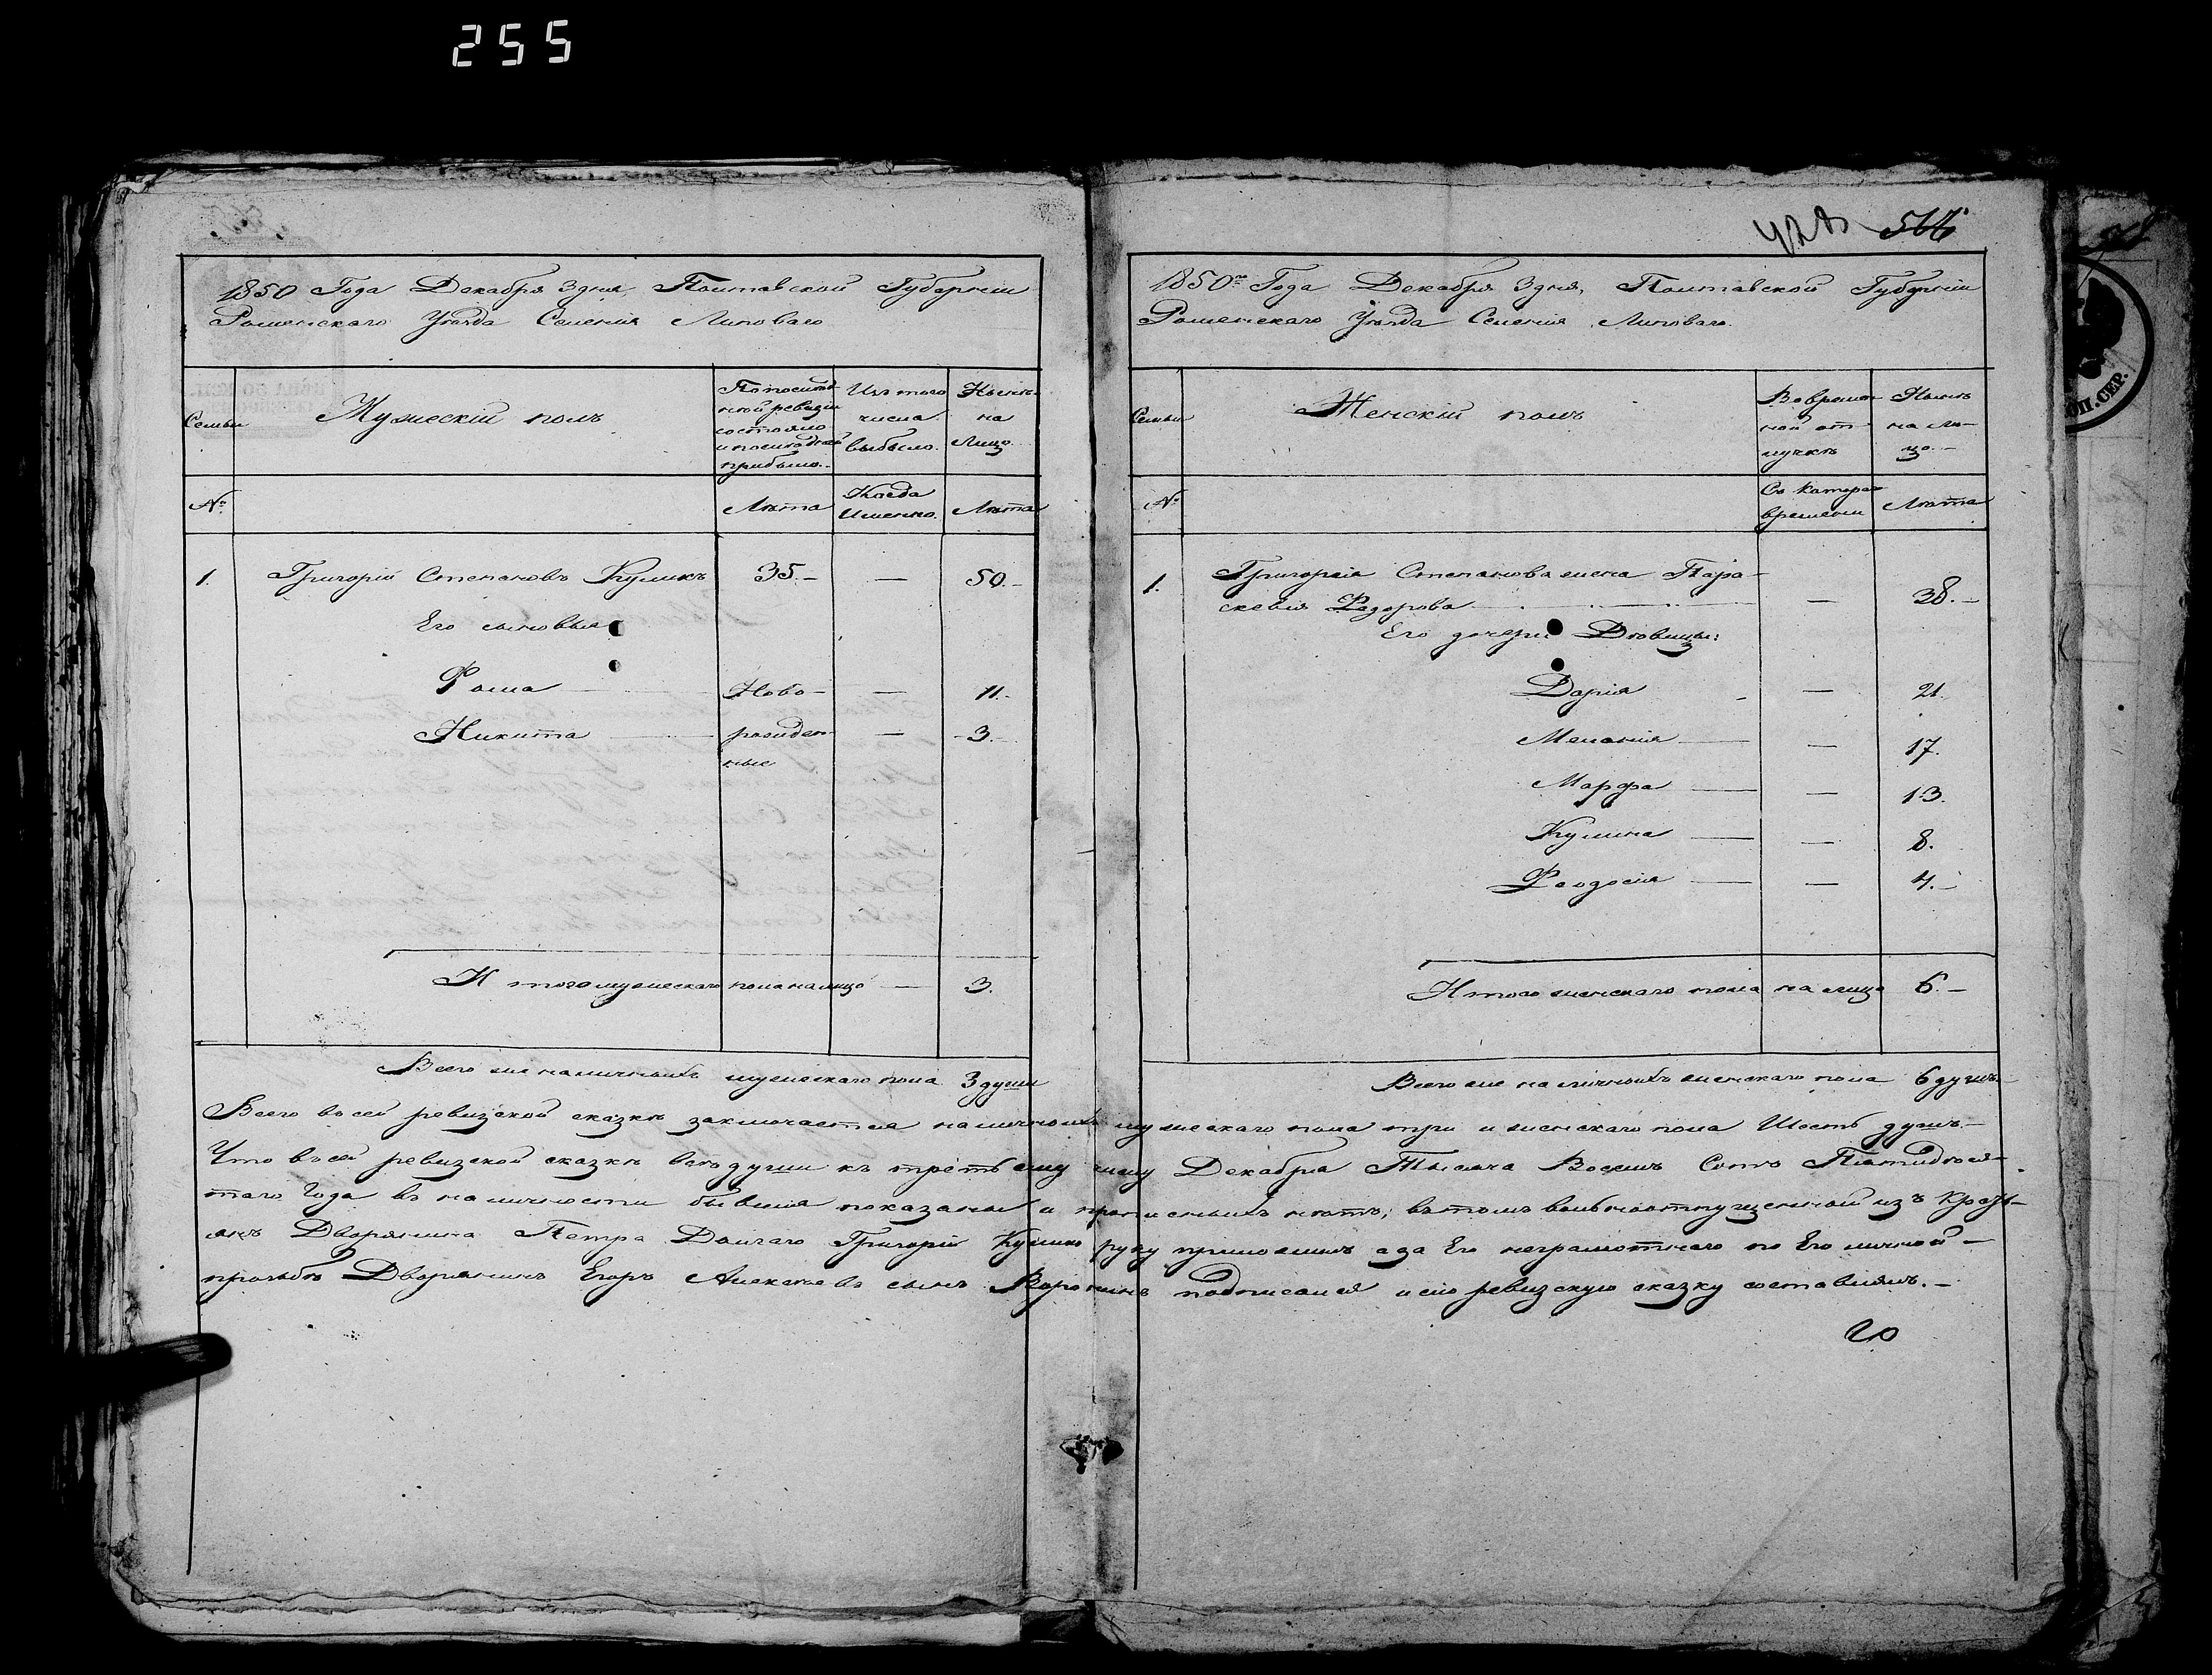 255
1850 Года Декабря 3 дня, Полтавской Губерніи
Роменскаго Уѣзда Селенія Липоваго
Семьи
Мужескій полъ
По послѣд-
ней ревизіи
состояло
и послѣ оной
прибыло.
Изъ того
числа
выбыло.
Нынѣ
на
Лицо
№
Лѣта
Когда
Именно.
Лѣта
1. Григорій Степановъ Куликъ 35.– — 50.–
Его сыновья
Фома — Ново- — 11.–
Никита — рожден- — 3.–
ные
Итого мужескаго пола налицо — 3.
Всего же наличныхъ мужескаго пола 3 души
428 514
1850го Года Декабря 3 дня, Полтавской Губерніи
Роменскаго Уѣзда Селенія Липоваго.
Семьи
Женскій полъ
Во времен-
ной от-
лучкѣ
Нынѣ
на ли-
цо.–
№
Съ котораго
времени
Лѣта
1. Григорія Степанова жена Пара-
скевія Федорова — — 38.–
Его дочери Дѣвицы:
Дарія — 21.
Меланія — — 17.
Марфа — — 13.
Кулина — — 8.
Феодосія — — 4.–
Итого женскаго пола на лицо 6.–
Всего же наличныхъ женскаго пола 6 душъ.
Всего въ сей ревизской сказкѣ заключается наличныхъ мужескаго пола три и женскаго пола Шесть душъ.–
Что въ сей ревизской сказкѣ всѣ души къ третьему числу Декабря Тысяча Восемь Сотъ Пятидеся-
таго Года въ наличности бывшія показаны и прописныхъ нѣтъ; въ томъ вольноотпущенный изъ Крестъ-
янъ Дворянина Петра Григорій Куликъ руку приложилъ а за Его неграмотнаго по Его личной–
прозьбѣ Дворянинъ Егоръ Алексѣевъ сынъ подписался и сію ревизскую сказку составлялъ.–
ОП. СЕР.